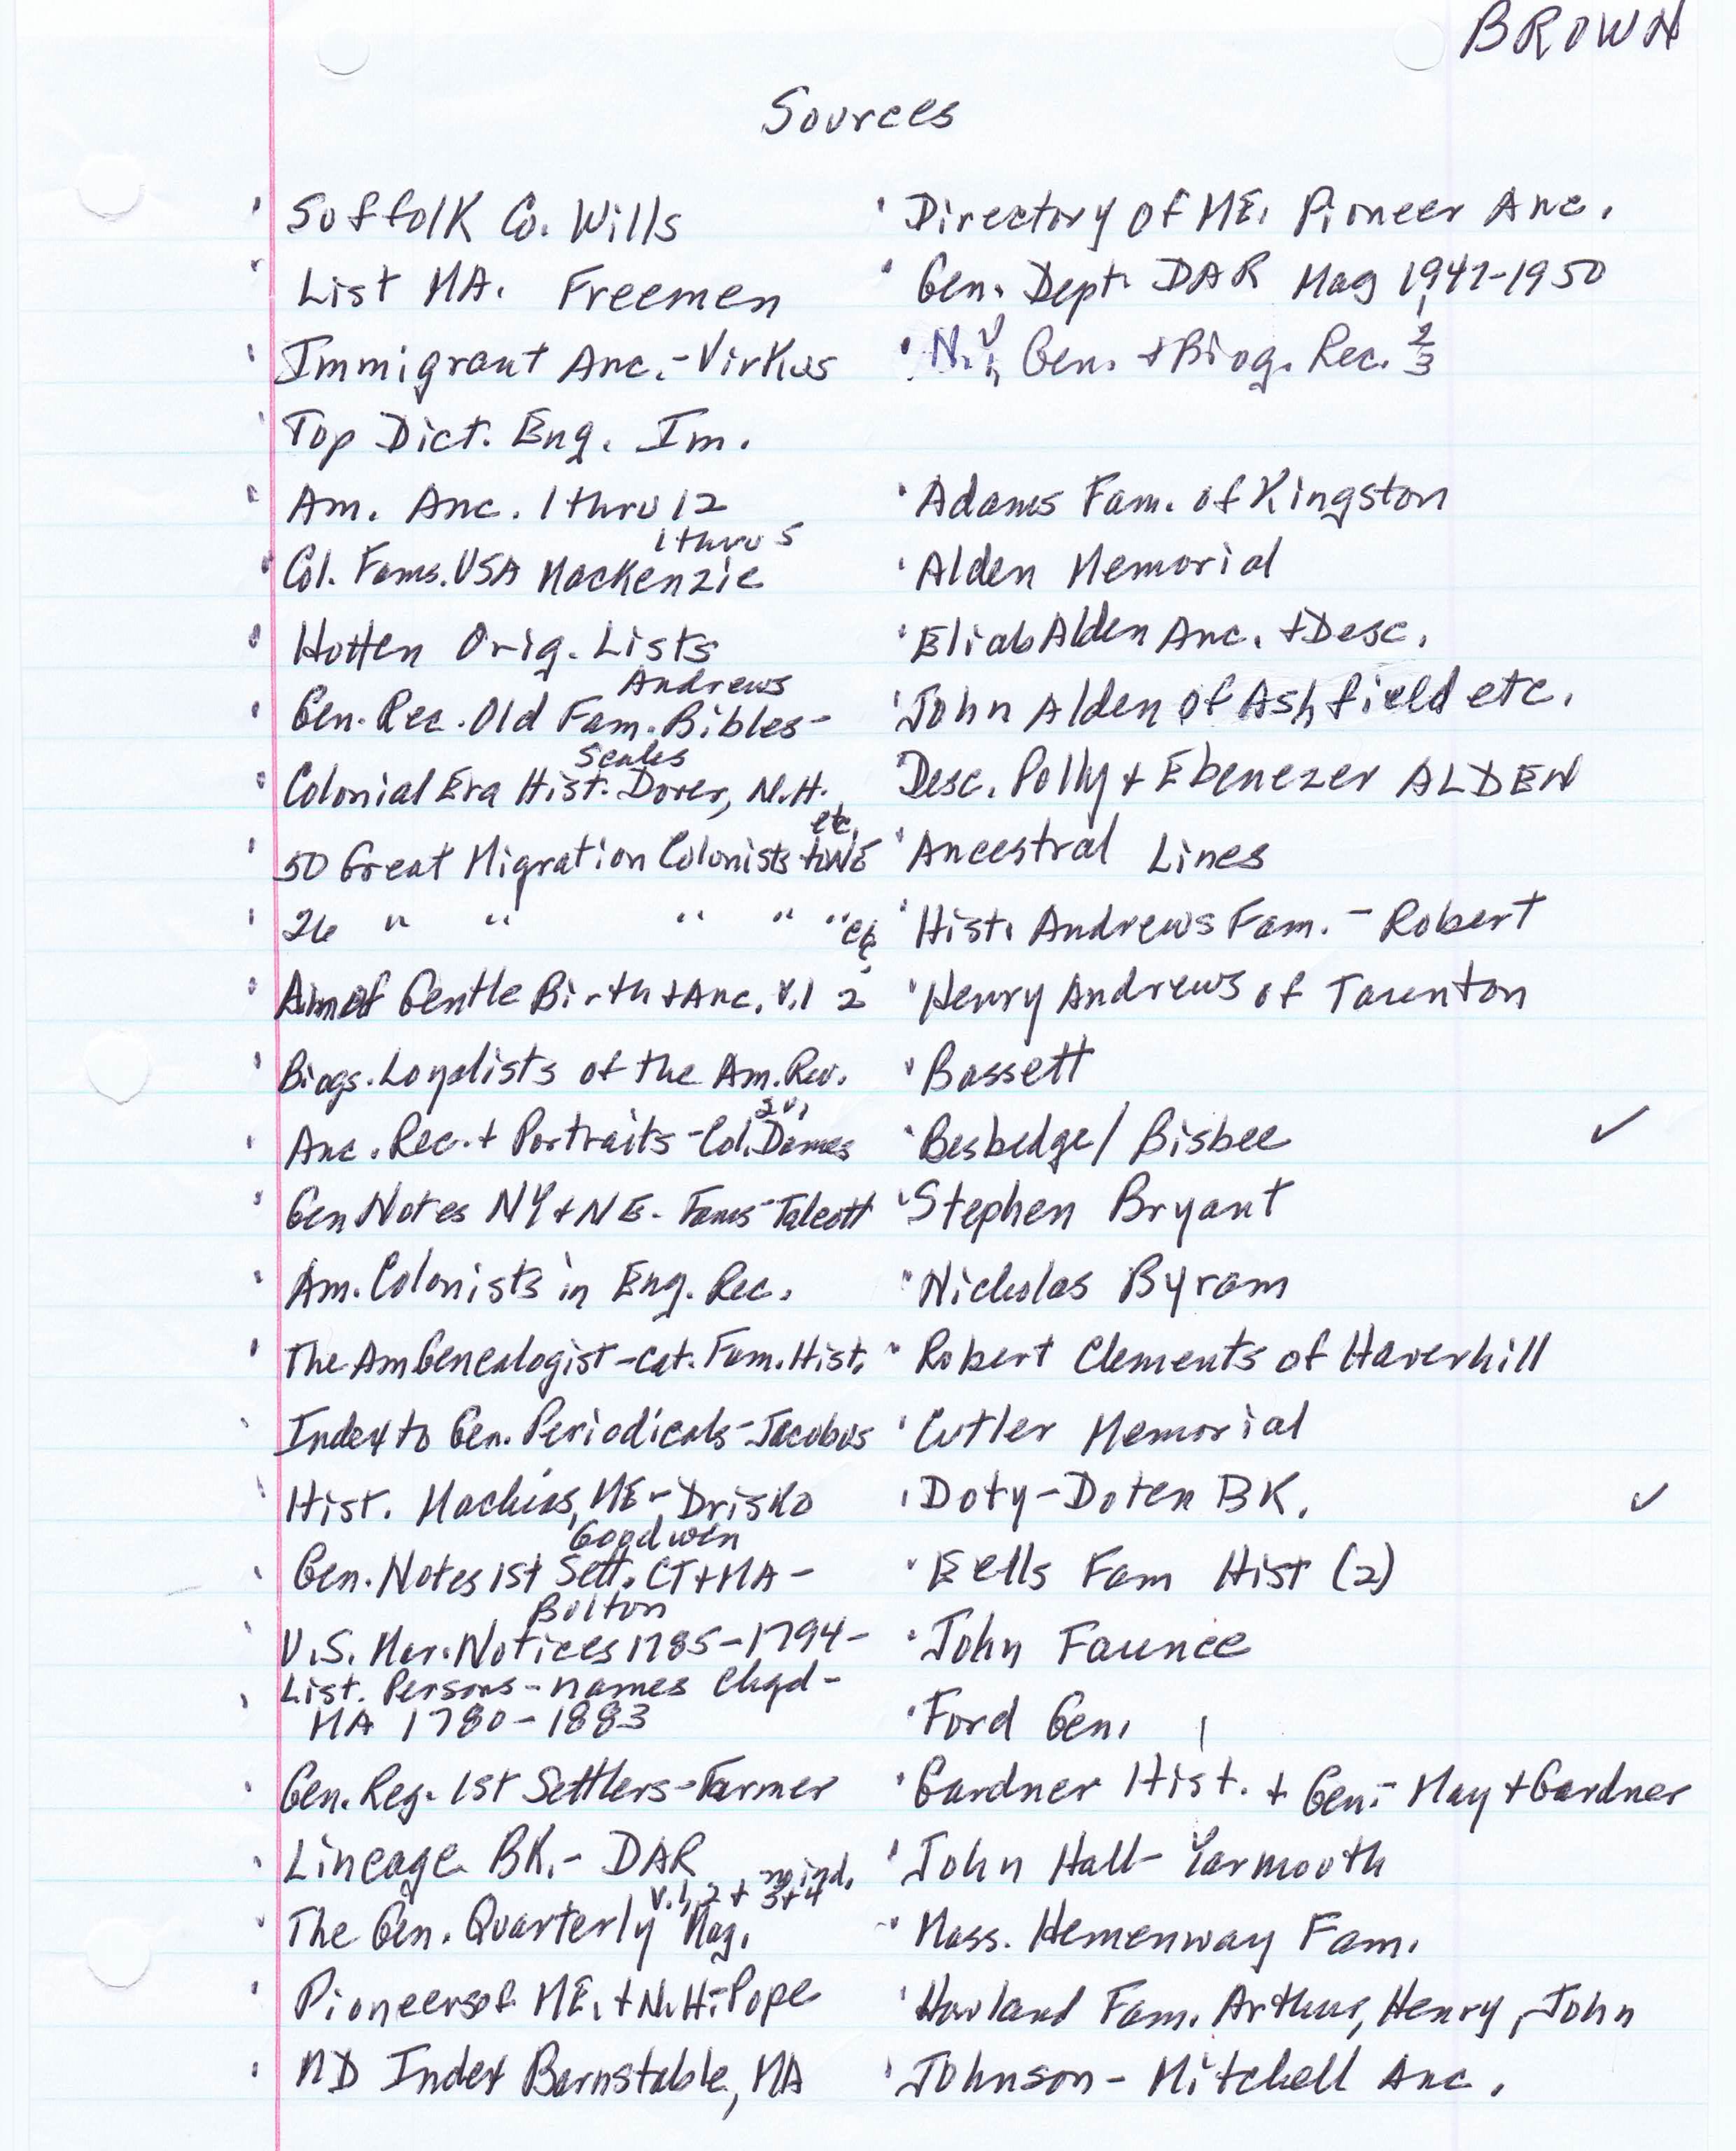 BROWN
Sources
Suffolk Co. Wills
List MA. Freemen
Immigrant Anc. - Virkus
Top Dict. Eng. Im.
Am. Anc. 1 thru 12
1 thru 5
Col. Fams. USA MacKenzie
Hotten Orig. Lists
Andrews
Gen. Rec. Old Fam. Bibles -
Scales
Colonial Era Hist. Dover, N.H.
etc.
50 Great Migration Colonists to NE
26 " " " " " etc
Am of Gentle Birth + Anc. V.1 2
Biogs. Loyalists of the Am. Rev.
2 v.
Anc. Rec. + Portraits - Col. Dames
Gen Notes NY + NE - Fams - Talcott
Am. Colonists in Eng. Rec.
The Am Genealogist - Cat. Fam. Hist.
Index to Gen. Periodicals - Jacobus
Hist. Machias, ME - Drisko
Goodwin
Gen. Notes 1st Sett. CT + MA -
Bolton
U.S. Mar. Notices 1785-1794 -
List. Persons - names Chgd -
MA 1780-1883
Gen. Reg. 1st Settlers - Farmer
Lineage BK. - DAR
no ind.
v. 1, 2 + 3 + 4
The Gen. Quarterly Mag.
Pioneers of ME. + N.H. - Pope
MD Index Barnstable, MA
Directory of ME. Pioneer Anc.
Gen. Dept. DAR Mag 1947-1950
N.Y. Gen. + Biog. Rec. 2/3
Adams Fam. of Kingston
Alden Memorial
Eliab Alden Anc. + Desc.
John Alden of Ashfield etc.
Desc. Polly + Ebenezer ALDEN
Ancestral Lines
Hist. Andrews Fam. - Robert
Henry Andrews of Taunton
Bassett
Besbedge / Bisbee ✓
Stephen Bryant
Nicholas Byram
Robert Clements of Haverhill
Cutler Memorial
Doty-Doten BK. ✓
Eells Fam Hist (2)
John Faunce
Ford Gen.
Gardner Hist. + Gen. - May + Gardner
John Hall - Yarmouth
Mass. Hemenway Fam.
Howland Fam. Arthur, Henry, John
Johnson - Mitchell Anc.